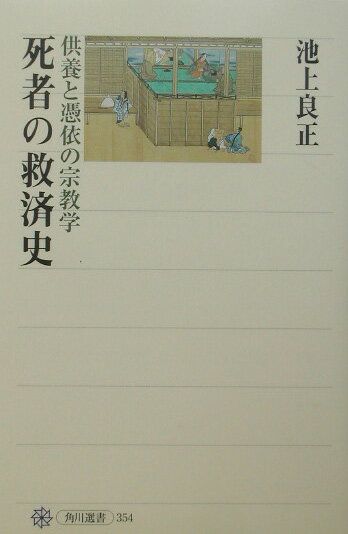 池上良正
供養と憑依の宗教学
死者の救済史
角川選書 354